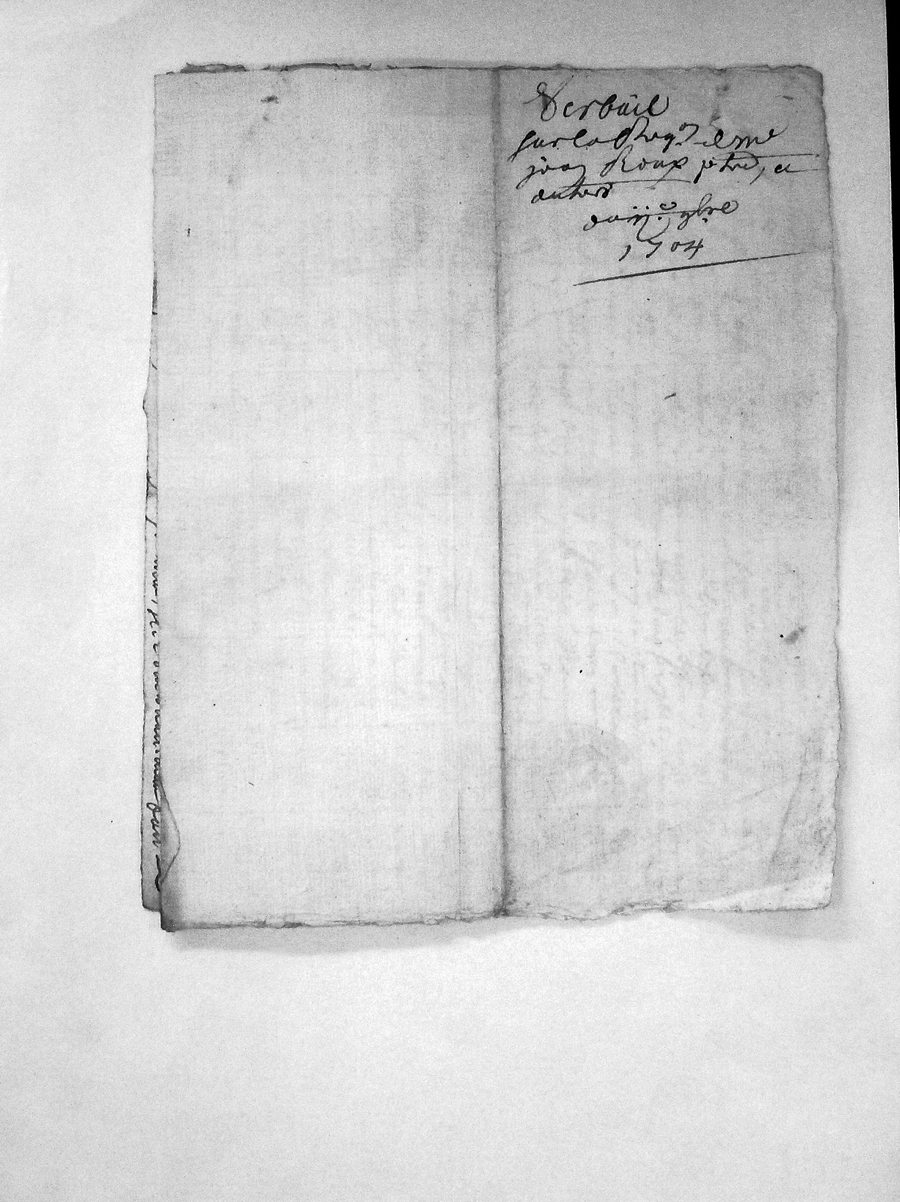 Verbail
sur la Reqon de Me
jean Roux ptre, et
autres
du ije 9bre
1704